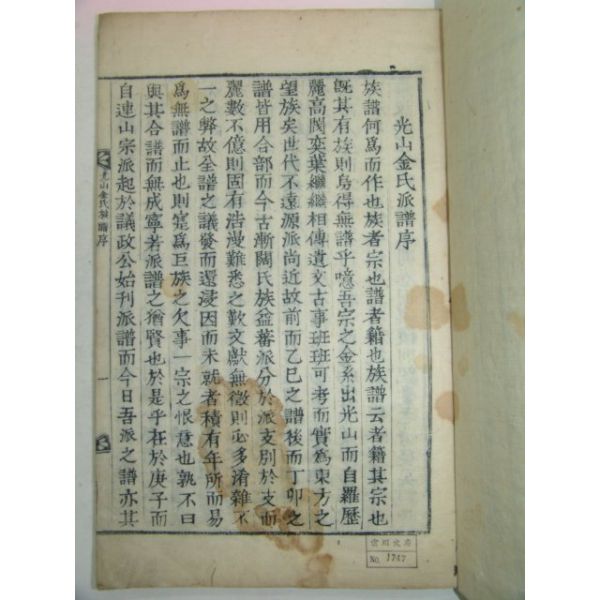 光山金氏派譜序
族譜何爲而作也族者宗也譜者籍也族譜云者籍其宗也
旣其有族則烏得無譜乎噫吾宗之金系出光山而自羅歷
麗高閥奕葉繼繼相傳遺文古事班班可考而實爲東方之
望族矣世代不遠源派尚近故前而乙巳之譜後而丁卯之
譜皆用合部而今古漸闊氏族益蕃派分於派支別於支而
麗數不億則固有浩漫難悉之歎文獻無徵則必多淆雜不
一之弊故全譜之議發而還寢因而未就者積有年所而易
爲無譜而止也則寔爲巨族之欠事一宗之恨意也孰不曰
與其合譜而無成寧若派譜之猶賢也於是乎在於庚子而
自連山宗派起於議政公始刊派譜而今日吾派之譜亦其
光山金氏族譜序
一
No. 1747